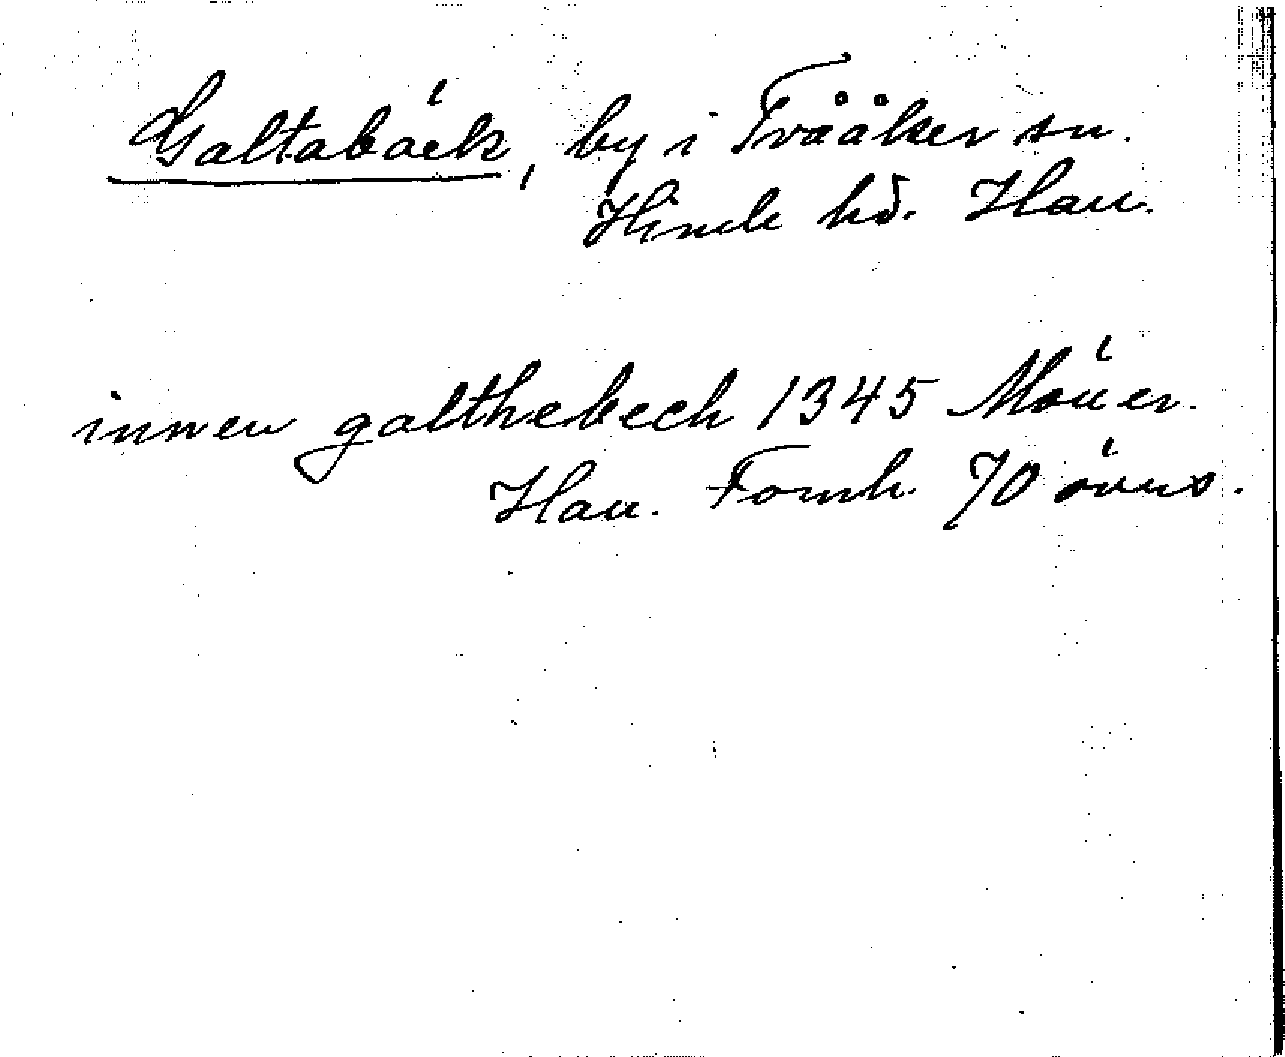 Galtabäck, by i Tvååker sn.
Himle hd. Hall.
innen galthebech 1345
Hall. Fornh. 70 övers.